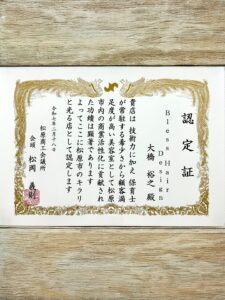 認定証
Bless Hair
Design
大橋 裕之 殿
貴店は 技術力に加え 保育士
が常駐する希少さから顧客満
足度が高い美容室として松原
市内の商業活性化に貢献され
た功績は顕著であります
よってここに松原市のキラリ
と光る店として認定します
令和七年二月十八日
松原商工会議所
会頭 松岡